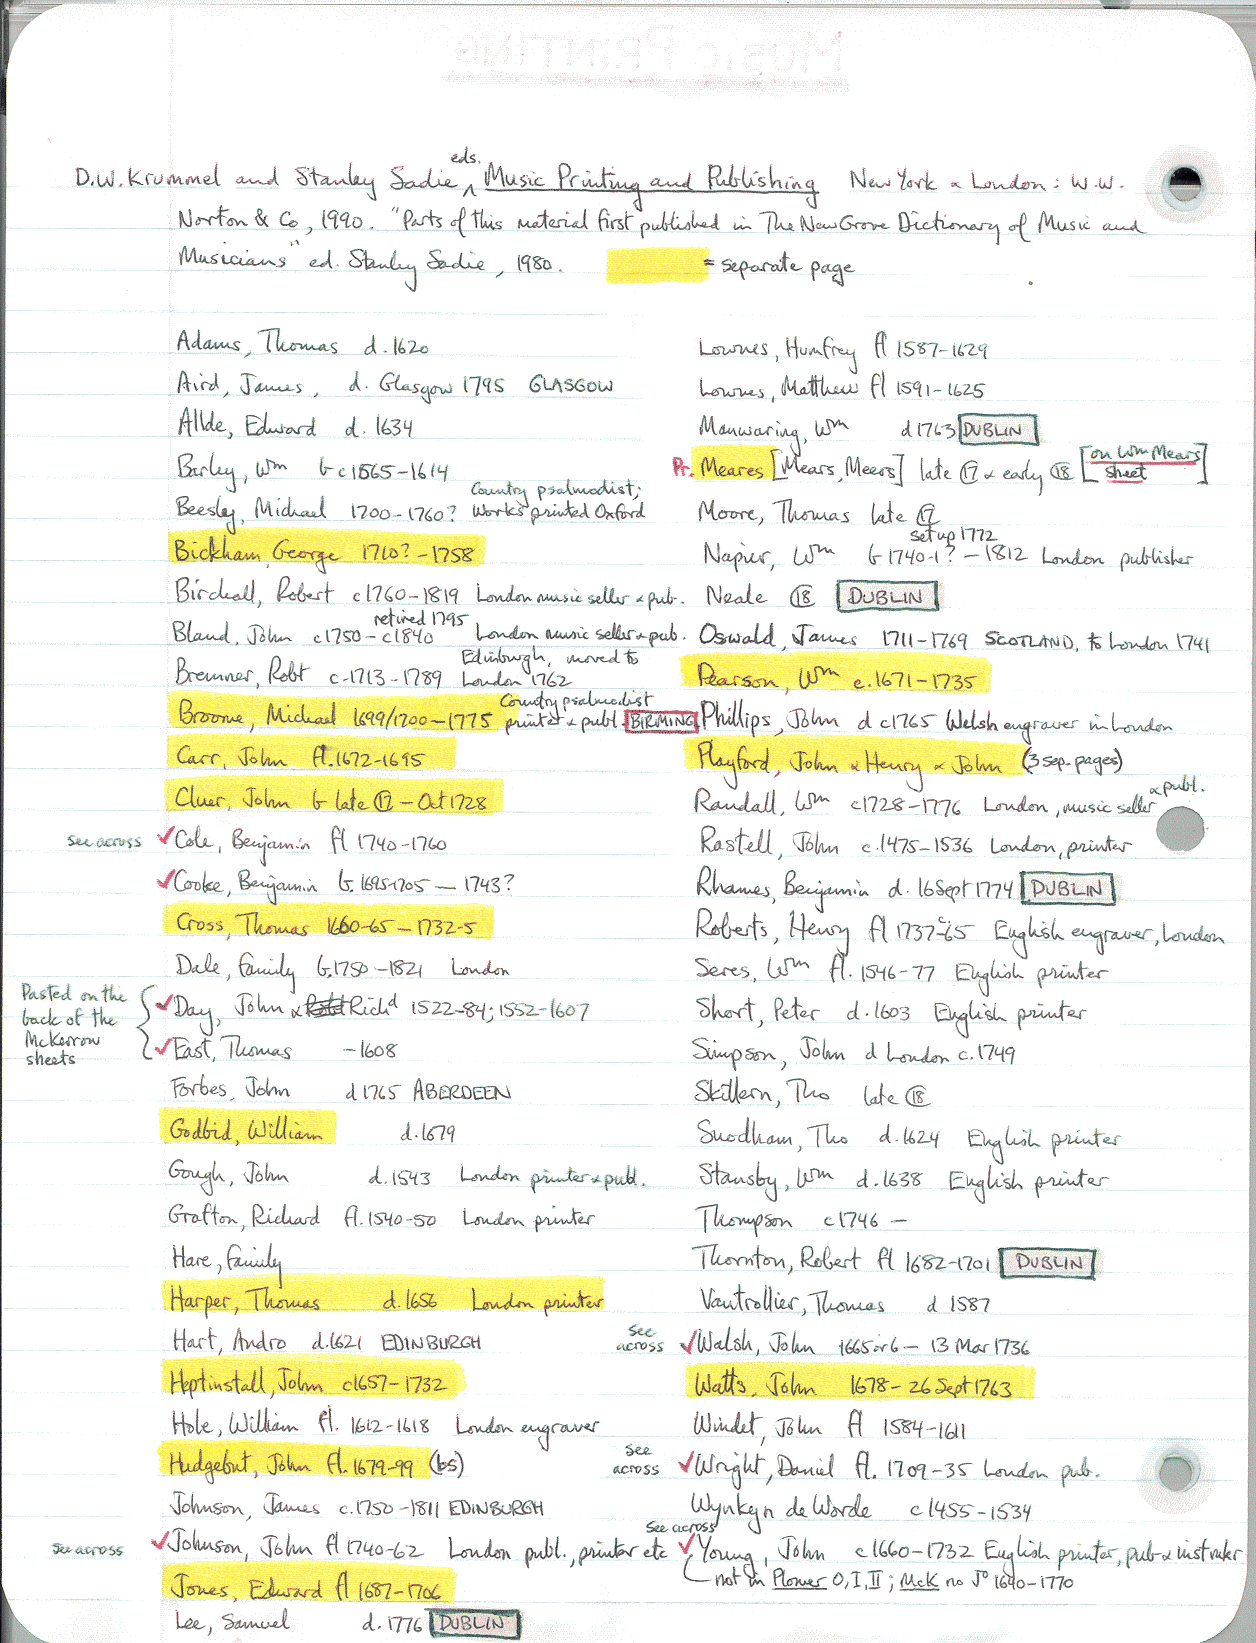 MUSIC PRINTING
D.W. Krummel and Stanley Sadie eds. Music Printing and Publishing New York & London: W.W.
Norton & Co, 1990. "Parts of this material first published in The New Grove Dictionary of Music and
Musicians" ed. Stanley Sadie, 1980. = separate page
Adams, Thomas d. 1620
Aird, James, d. Glasgow 1795 GLASGOW
Allde, Edward d. 1634
Barley, Wm b c1565-1614
Beesly, Michael 1700-1760? Country psalmodist; Works printed Oxford
Bickham, George 1710?-1758
Birchall, Robert c1760-1819 London music seller & pub.
Bland, John c1750-c1840 retired 1795 London music seller & pub.
Bremner, Robt c.1713-1789 Edinburgh, moved to London 1762
Broome, Michael 1699/1700-1775 Country psalmodist printer & publ. BIRMING
Carr, John fl. 1672-1695
Cluer, John b late 17 - Oct 1728
see across ✓ Cole, Benjamin fl 1740-1760
✓ Cooke, Benjamin b. 1695-1705 — 1743?
Cross, Thomas 1660-65 - 1732-5
Dale, Family b. 1750-1821 London
Pasted on the back of the McKerrow sheets
✓ Day, John & Richd 1522-84; 1552-1607
✓ East, Thomas -1608
Forbes, John d 1765 ABERDEEN
Godbid, William d. 1679
Gough, John d. 1543 London printer & publ.
Grafton, Richard fl. 1540-50 London printer
Hare, Family
Harper, Thomas d. 1656 London printer
Hart, Andro d. 1621 EDINBURGH
Heptinstall, John c1657-1732
Hole, William fl. 1612-1618 London engraver
Hudgebut, John fl. 1679-99 (bs)
Johnson, James c. 1750-1811 EDINBURGH
see across ✓ Johnson, John fl 1740-62 London publ., printer etc
Jones, Edward fl 1687-1706
Lee, Samuel d. 1776 DUBLIN
Lownes, Humfrey fl 1587-1629
Lownes, Matthew fl 1591-1625
Manwaring, Wm d 1763 DUBLIN
Pr. Meares [Mears, Meers] late 17 & early 18 [on Wm Mears sheet]
Moore, Thomas late 17
Napier, Wm b 1740-1? - 1812 set up 1772 London publisher
Neale 18 DUBLIN
Oswald, James 1711-1769 SCOTLAND, to London 1741
Pearson, Wm c. 1671-1735
Phillips, John d c1765 Welsh engraver in London
Playford, John & Henry & John (3 sep. pages)
Randall, Wm c1728-1776 London, music seller & publ.
Rastell, John c. 1475-1536 London, printer
Rhames, Benjamin d. 16 Sept 1774 DUBLIN
Roberts, Henry fl 1737-c65 English engraver, London
Seres, Wm fl. 1546-77 English printer
Short, Peter d. 1603 English printer
Simpson, John d London c. 1749
Skillern, Tho late 18
Snodham, Tho d. 1624 English printer
Stansby, Wm d. 1638 English printer
Thompson c1746 —
Thornton, Robert fl 1682-1701 DUBLIN
Vautrollier, Thomas d 1587
see across ✓ Walsh, John 1665 or 6 - 13 Mar 1736
Watts, John 1678 - 26 Sept 1763
Windet, John fl 1584-1611
see across ✓ Wright, Daniel fl. 1709-35 London pub.
Wynkyn de Worde c1455-1534
see across ✓ Young, John c1660-1732 English printer, pub & instr mkr
not in Plomer 0, I, II; McK no Jo 1640-1770